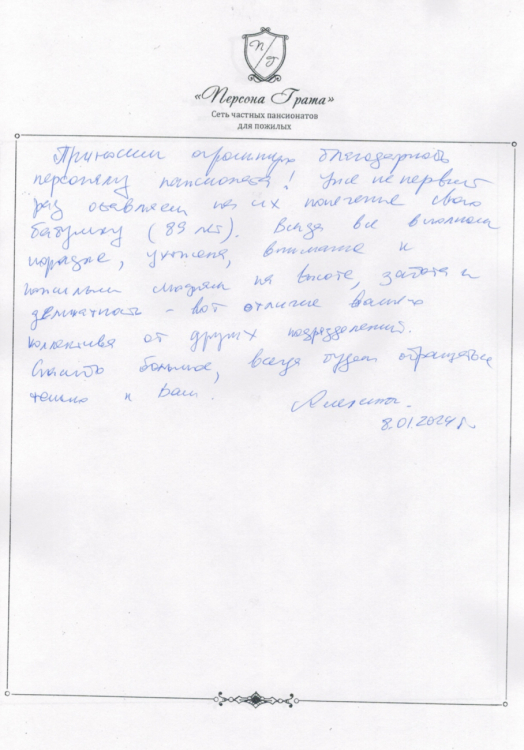 П Г
«Персона Грата»
Сеть частных пансионатов
для пожилых
Приносим огромную благодарность
персоналу пансионата! Уже не первый
раз оставляем на их попечение свою
бабушку (89 лет). Всегда все в полном
порядке, ухожена, внимание к
пожилым людям на высоте, забота и
деликатность - вот отличие вашего
коллектива от других подразделений.
Спасибо большое, всегда будем обращаться
только к Вам.
8.01.2024 г.